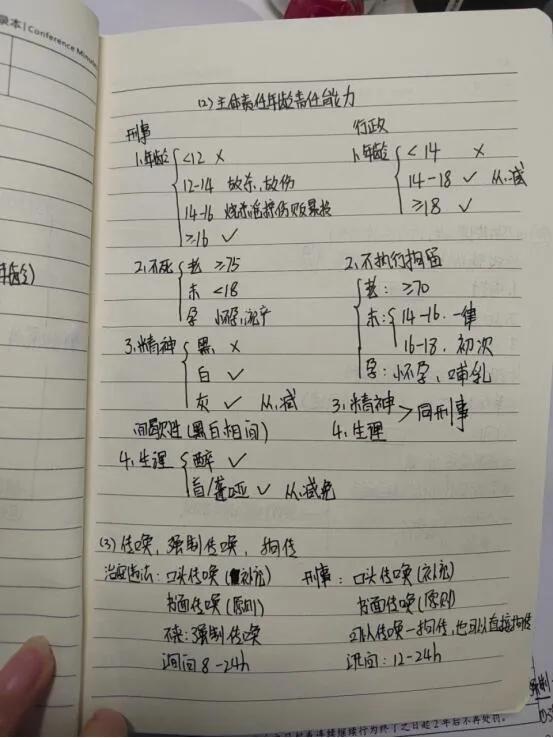 录本 | Conference Minutes
(2) 主体责任年龄责任能力
刑事
1.年龄 <12 ×
12-14 故杀、故伤
14-16
≥16 ✓
2.不死 老 ≥75
未 <18
孕 怀孕、流产
3.精神 黑 ×
白 ✓
灰 ✓ 从、减
间歇性(黑白相间)
4.生理 醉 ✓
盲/聋哑 ✓ 从、减、免
行政
1.年龄 <14 ×
14-18 ✓ 从、减
≥18 ✓
2.不执行拘留
老: ≥70
未: 14-16. 一律
16-18. 初次
孕: 怀孕、哺乳
3.精神
4.生理 > 同刑事
(3) 传唤、强制传唤、拘传
治安违法: 口头传唤(补充)
书面传唤(原则)
不来:强制传唤
询问 8-24h
刑事: 口头传唤(补充)
书面传唤(原则)
可以传唤—拘传,也可以直接拘传
讯问: 12-24h
年龄)
强制
继续行为终了之日起2年后不再处罚。